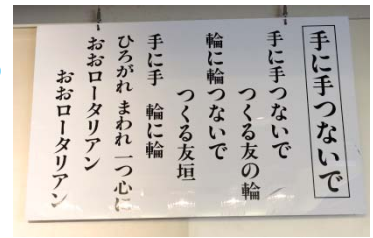 手に手つないで
手に手つないで
つくる友の輪
輪に輪つないで
つくる友垣
手に手 輪に輪
ひろがれ まわれ 一つ心に
おおロータリアン
おおロータリアン